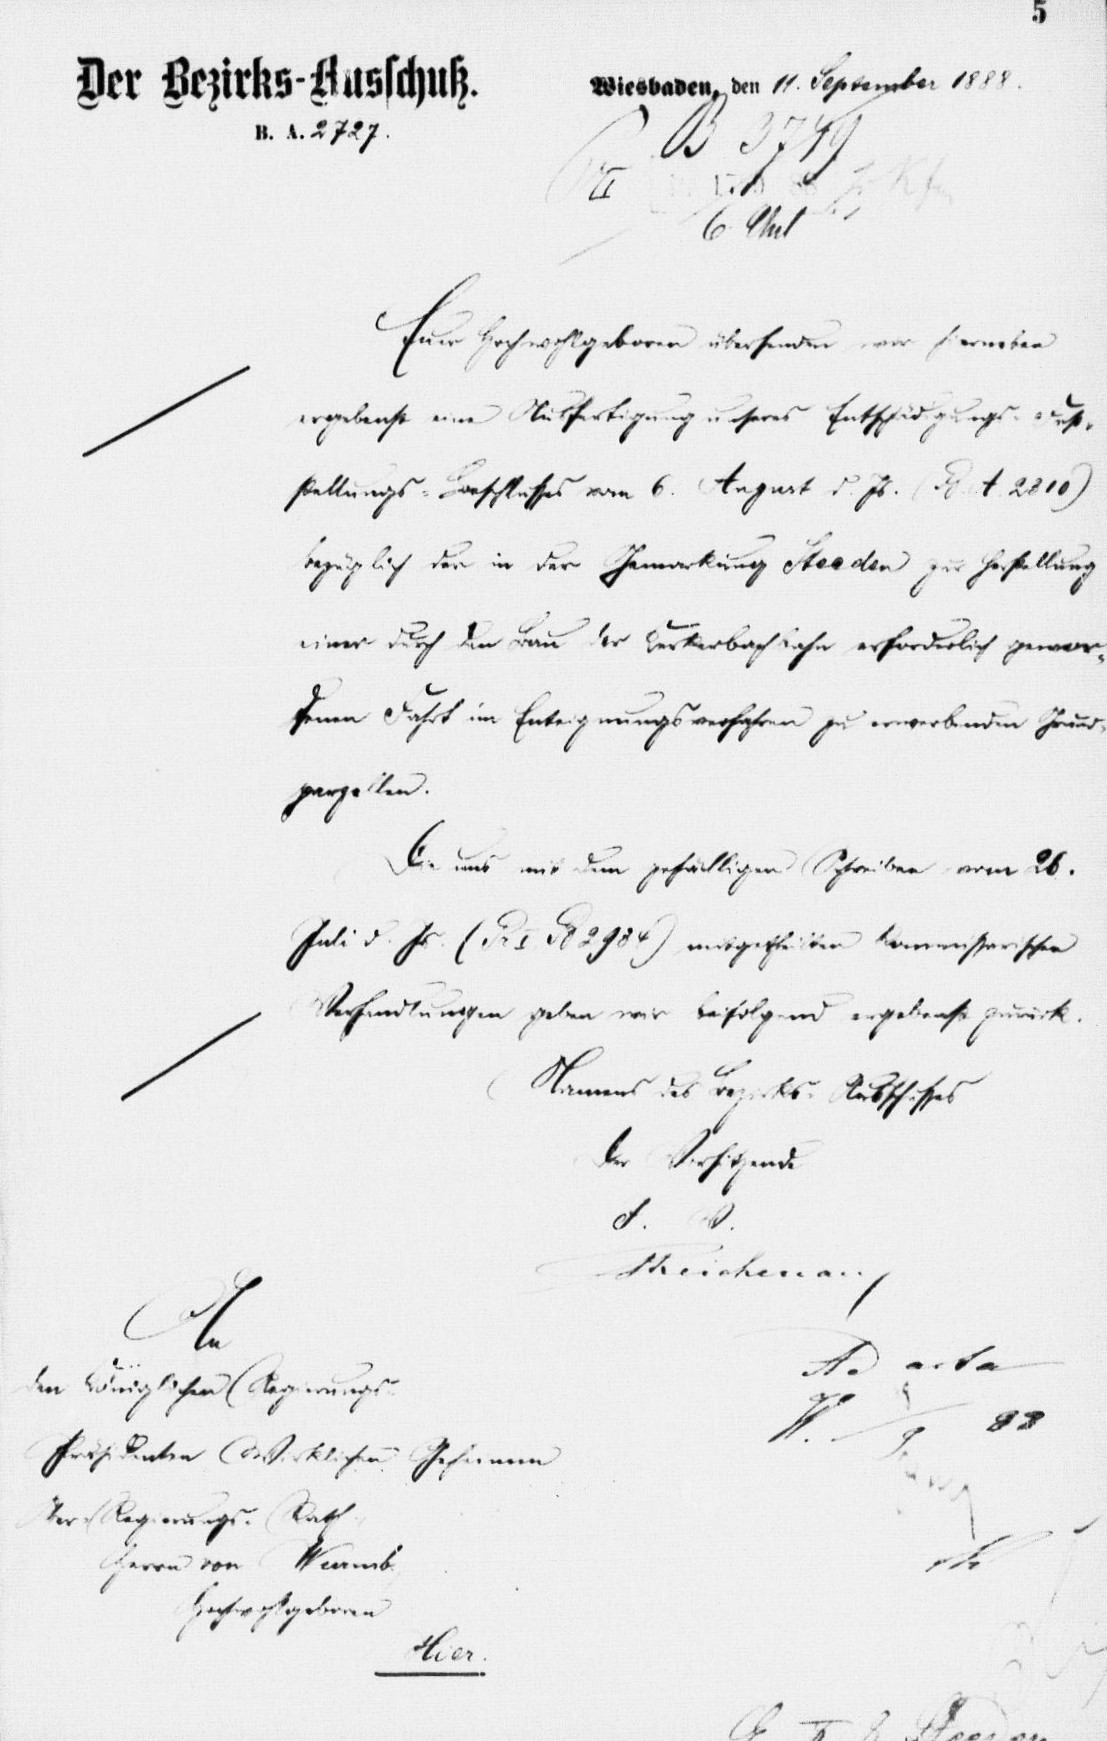 5
Der Bezirks-Ausschuß.
Wiesbaden, den 11. September 1888.
B. A. 2727.
B 3749
Euer Hochwohlgeboren übersenden wir hierneben
ergebenst eine Ausfertigung unseres Entschädigungs-Fest-
stellungs-Beschlusses vom 6. August d. Js. (B. A. 2310)
bezüglich der in der Gemarkung Steeden zur Herstellung
einer durch den Bau der Kerkerbachbahn erforderlich gewor-
denen Fahrt im Enteignungsverfahren zu erwerbenden Grund-
parzellen.
Die uns mit dem gefälligen Schreiben vom 26.
Juli d. Js. (Pr I B 2984) mitgetheilten kommissarischen
Verhandlungen geben wir beifolgend ergebenst zurück.
Namens des Bezirks-Ausschusses
Der Vorsitzende
J. V.
Reichenau
An
den Königlichen Regierungs-
Präsidenten Wirklichen Geheimen
Ober-Regierungs-Rath
Herrn von Wurmb
Hochwohlgeboren
Hier.
Ad acta
W. 9 88
Steeden